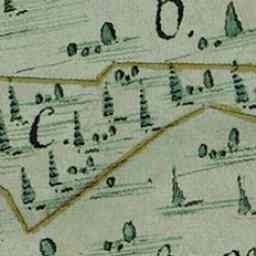 b.
c.